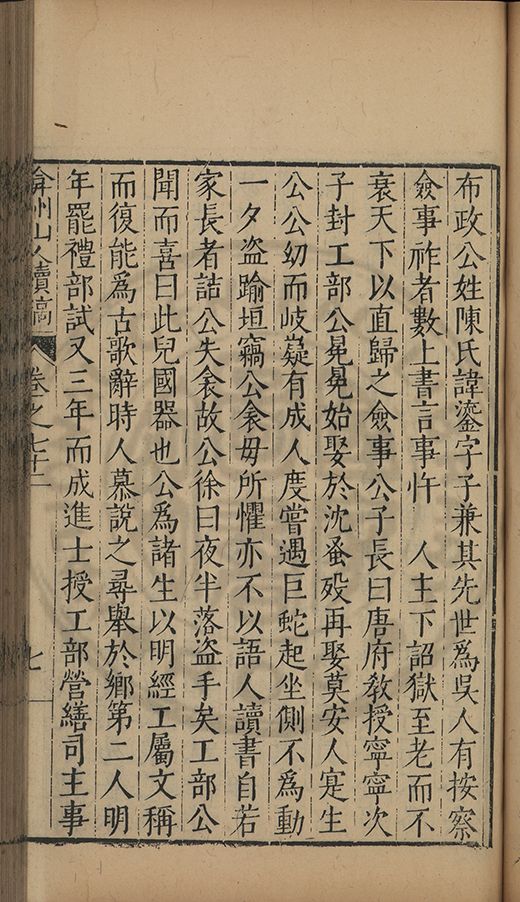 布政公姓陳氏諱鎏字子兼其先世爲吳人有按察
僉事祚者數上書言事忤　人主下詔獄至老而不
衰天下以直歸之僉事公子長曰唐府敎授寧寧次
子封工部公冕冕始娶於沈蚤殁再娶莫安人寔生
公公幼而岐嶷有成人度嘗遇巨蛇起坐側不爲動
一夕盜踰垣竊公衾毋所懼亦不以語人讀書自若
家長者詰公失衾故公徐曰夜半落盜手矣工部公
聞而喜曰此兒國器也公爲諸生以明經工屬文稱
而復能爲古歌辭時人慕說之尋舉於鄉第二人明
年罷禮部試又三年而成進士授工部營繕司主事
弇州山人續稿　卷之七十二　七